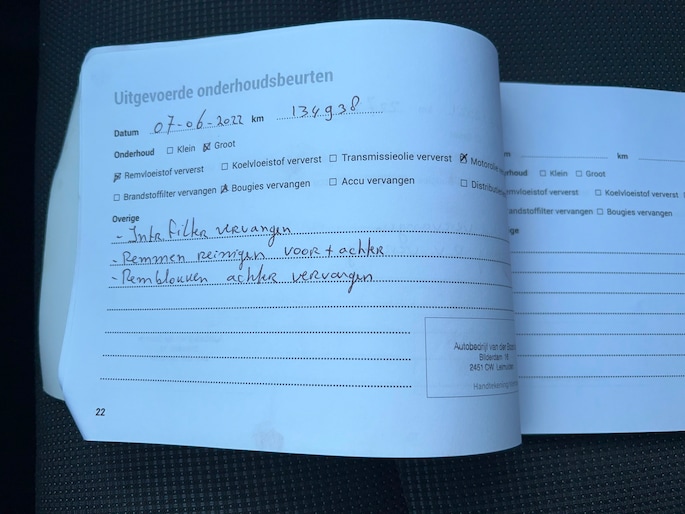 Uitgevoerde onderhoudsbeurten
Datum 07-06-2022 km 134938
Onderhoud ☐ Klein ☒ Groot
☒ Remvloeistof ververst ☐ Koelvloeistof ververst ☐ Transmissieolie ververst ☒ Motorolie
☐ Brandstoffilter vervangen ☒ Bougies vervangen ☐ Accu vervangen ☐
Overige
- Intr filter vervangen
- Remmen reinigen voor + achter
- Remblokken achter vervangen
Autobedrijf van der
Bilderdam 16
2451 CW
22
km
☐ Klein ☐ Groot
ververst ☐ Koelvloeistof ververst
vervangen ☐ Bougies vervangen